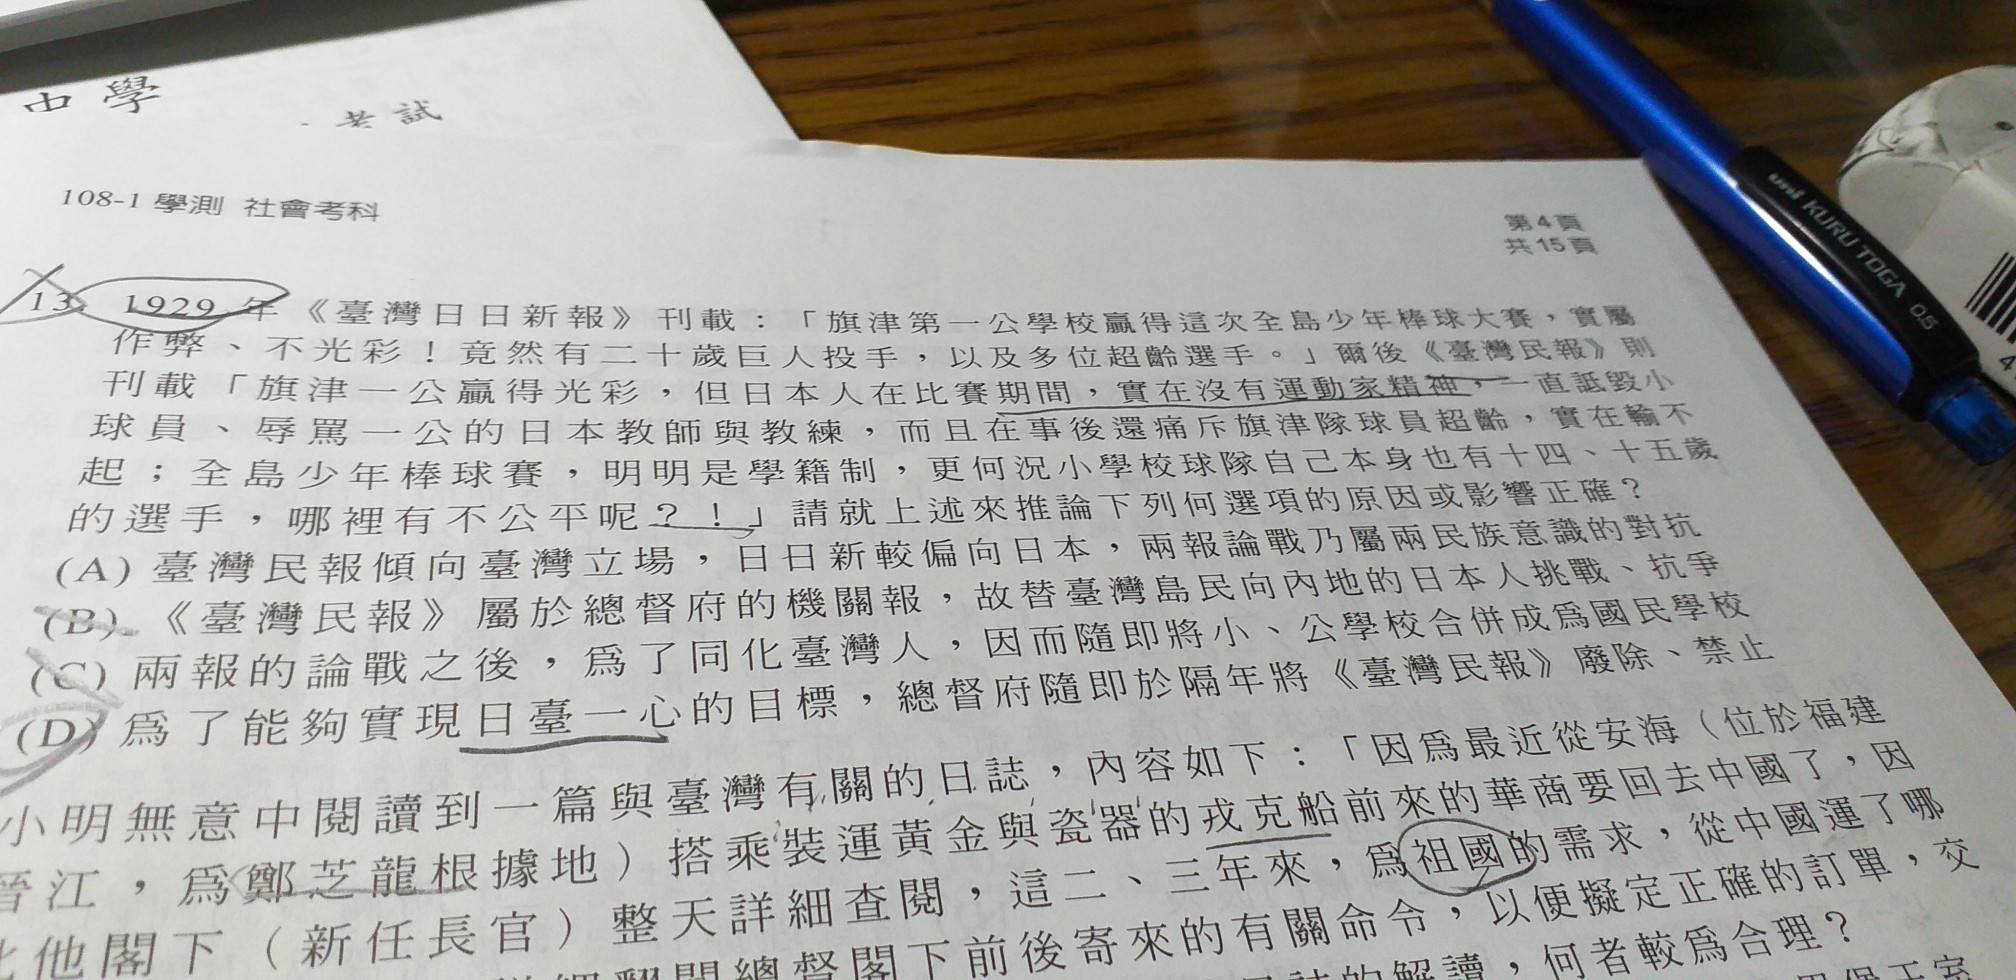 中學
考試
108-1 學測 社會考科
第4頁
共15頁
13 1929 年《臺灣日日新報》刊載：「旗津第一公學校贏得這次全島少年棒球大賽，實屬
作弊、不光彩！竟然有二十歲巨人投手，以及多位超齡選手。」爾後《臺灣民報》則
刊載「旗津一公贏得光彩，但日本人在比賽期間，實在沒有運動家精神，一直詆毀小
球員、辱罵一公的日本教師與教練，而且在事後還痛斥旗津隊球員超齡，實在輸不
起；全島少年棒球賽，明明是學籍制，更何況小學校球隊自己本身也有十四、十五歲
的選手，哪裡有不公平呢？！」請就上述來推論下列何選項的原因或影響正確？
(A) 臺灣民報傾向臺灣立場，日日新較偏向日本，兩報論戰乃屬兩民族意識的對抗
(B) 《臺灣民報》屬於總督府的機關報，故替臺灣島民向內地的日本人挑戰、抗爭
(C) 兩報的論戰之後，為了同化臺灣人，因而隨即將小、公學校合併成為國民學校
(D) 為了能夠實現日臺一心的目標，總督府隨即於隔年將《臺灣民報》廢除、禁止
小明無意中閱讀到一篇與臺灣有關的日誌，內容如下：「因為最近從安海（位於福建
晉江，為鄭芝龍根據地）搭乘裝運黃金與瓷器的戎克船前來的華商要回去中國了，因
此他閣下（新任長官）整天詳細查閱，這二、三年來，為祖國的需求，從中國運了哪
翻閱總督閣下前後寄來的有關命令，以便擬定正確的訂單，交
的解讀，何者較為合理？
uni KURU TOGA 0.5